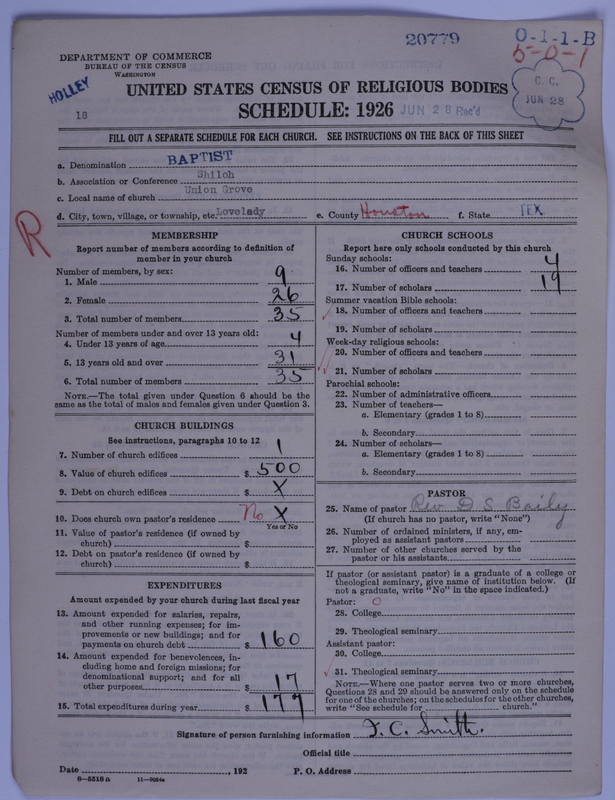 20779
O-1-1-B
5-0-1
DEPARTMENT OF COMMERCE
BUREAU OF THE CENSUS
WASHINGTON
HOLLEY
18
C. C.
JUN 28
UNITED STATES CENSUS OF RELIGIOUS BODIES
SCHEDULE: 1926 JUN 28 Rec'd
FILL OUT A SEPARATE SCHEDULE FOR EACH CHURCH. SEE INSTRUCTIONS ON THE BACK OF THIS SHEET
a. Denomination BAPTIST
b. Association or Conference Shiloh
c. Local name of church Union Grove
d. City, town, village, or township, etc. Lovelady e. County Houston f. State TEX
R
MEMBERSHIP
Report number of members according to definition of
member in your church
Number of members, by sex:
1. Male 9
2. Female 26
3. Total number of members 35
Number of members under and over 13 years old:
4. Under 13 years of age 4
5. 13 years old and over 31
6. Total number of members 35
NOTE.—The total given under Question 6 should be the
same as the total of males and females given under Question 3.
CHURCH BUILDINGS
See instructions, paragraphs 10 to 12
7. Number of church edifices 1
8. Value of church edifices $ 500
9. Debt on church edifices $ X
10. Does church own pastor's residence No X
Yes or No
11. Value of pastor's residence (if owned by
church) $
12. Debt on pastor's residence (if owned by
church) $
EXPENDITURES
Amount expended by your church during last fiscal year
13. Amount expended for salaries, repairs,
and other running expenses; for im-
provements or new buildings; and for
payments on church debt $ 160
14. Amount expended for benevolences, in-
cluding home and foreign missions; for
denominational support; and for all
other purposes $ 17
15. Total expenditures during year $ 177
CHURCH SCHOOLS
Report here only schools conducted by this church
Sunday schools:
16. Number of officers and teachers 4
17. Number of scholars 19
Summer vacation Bible schools:
18. Number of officers and teachers
19. Number of scholars
Week-day religious schools:
20. Number of officers and teachers
21. Number of scholars
Parochial schools:
22. Number of administrative officers
23. Number of teachers—
a. Elementary (grades 1 to 8)
b. Secondary
24. Number of scholars—
a. Elementary (grades 1 to 8)
b. Secondary
PASTOR
25. Name of pastor Rev. D S Baily
(If church has no pastor, write "None")
26. Number of ordained ministers, if any, em-
ployed as assistant pastors
27. Number of other churches served by the
pastor or his assistants
If pastor (or assistant pastor) is a graduate of a college or
theological seminary, give name of institution below. (If
not a graduate, write "No" in the space indicated.)
Pastor: O
28. College
29. Theological seminary
Assistant pastor:
30. College
31. Theological seminary
NOTE.—Where one pastor serves two or more churches,
Questions 28 and 29 should be answered only on the schedule
for one of the churches; on the schedules for the other churches,
write "See schedule for church."
Signature of person furnishing information J. C. Smith.
Official title
Date , 192 P. O. Address
8-5518a 11-9054a